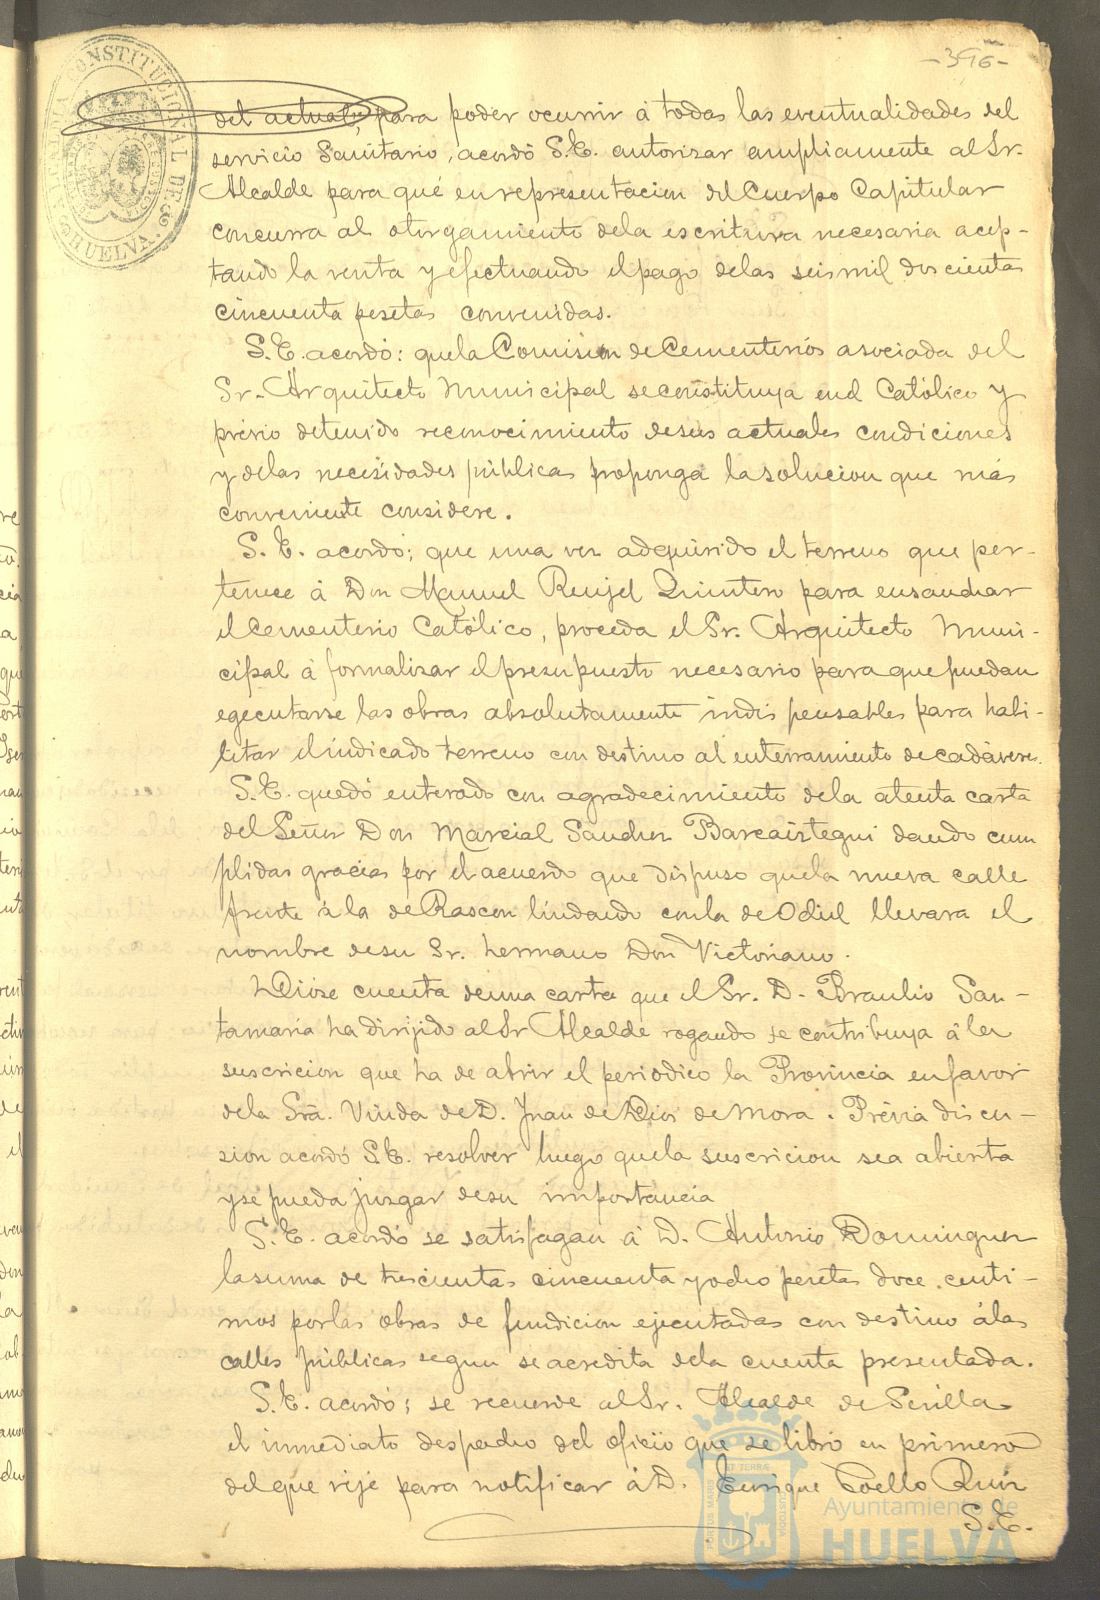 -396-
ALCALDIA CONSTITUCIONAL DE HUELVA
del actual, para poder ocurrir á todas las eventualidades del
servicio Sanitario, acordó S.E. autorizar ampliamente al Sr.
Alcalde para qué en representacion del Cuerpo Capitular
concurra al otorgamiento dela escritura necesaria acep-
tando la venta y efectuando el pago delas seis mil doscientas
cincuenta pesetas convenidas.
S.E. acordó: quela Comisión de Cementerios asociada del
Sr. Arquitecto Municipal se constituya en el Católico y
prévio detenido reconocimiento desus actuales condiciones
y delas necesidades públicas proponga la solucion que más
conveniente considere.
S.E. acordó; que una vez adquirido el terreno que per-
tenece á Don Manuel Quintero para ensanchar
el Cementerio Católico, proceda el Sr. Arquitecto Muni-
cipal á formalizar el presupuesto necesario para que puedan
egecutarse las obras absolutamente indispensables para habi-
litar el indicado terreno con destino al enterramiento de cadáveres.
S.E. quedó enterado con agradecimiento dela atenta carta
del Señor Don Marcial Sanchez Barcaiztegui dando cum
plidas gracias por el acuerdo que dispuso quela nueva calle
frente á la de Rascon lindando conla de Odiel llevara el
nombre desu Sr. hermano Don Victoriano.
Dióse cuenta deuna carta que el Sr. D. Braulio San-
tamaria ha dirijido al Sr Alcalde rogando se contribuya á la
suscricion que ha de abrir el periódico la Provincia en favor
dela Srã. Viuda de D. Juan de Dios de Mora. Prévia discu-
sion acordó S.E. resolver luego quela suscricion sea abierta
y se pueda juzgar desu importáncia
S.E. acordó se satisfagan á D. Antonio Dominguez
la suma de trescientas cincuenta y ocho pesetas doce centi-
mos por las obras de fundicion ejecutadas con destino á las
calles públicas segun se acredita dela cuenta presentada.
S.E. acordó; se recuerde al Sr. Alcalde de Sevilla
el inmediato despacho del oficio que se libró en primero
del que rije para notificar á D. Enrique Coello Ruiz
S.E.
Ayuntamiento de
HUELVA